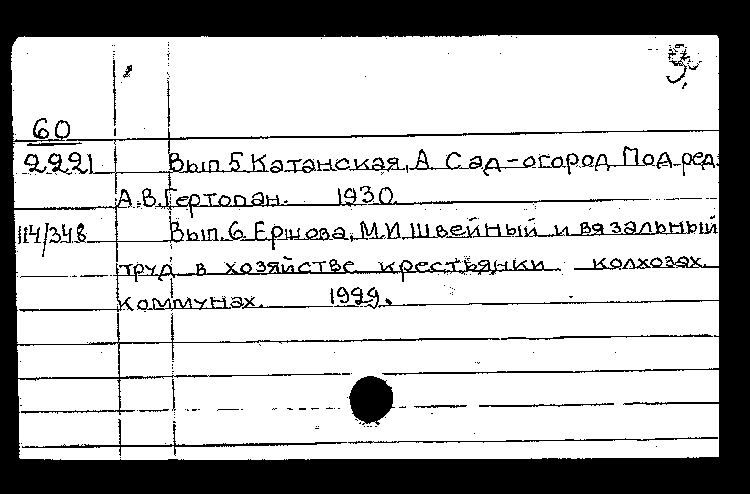 60
2221 Вып 5 Катанская, А. Сад-огород Под ред.
А.В.Гертопан. 1930.
114/348 Вып. 6 Ершова, М.И. Швейный и вязальный
труд в хозяйстве крестьянки колхозах.
коммунах. 1929.